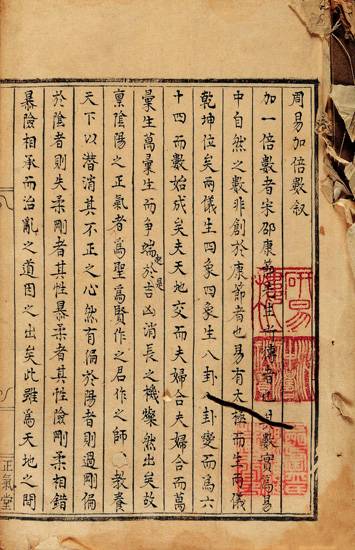 周易加倍數敘
加一倍數者宋邵康節先生之傳者也其數實爲易
中自然之數非創於康節者也易有太極而生兩儀
乾坤位矣兩儀生四象四象生八卦八卦變而爲六
十四而數始成矣夫天地交而夫婦合夫婦合而萬
彙生萬彙生而爭端起於是吉凶消長之機燦然出矣故
稟陰陽之正氣者爲聖爲賢作之君作之師教養
天下以潛消其不正之心然有偏於陽者則過剛偏
於陰者則失柔剛者其性暴柔者其性險剛柔相錯
暴險相承而治亂之道因之出矣此雖爲天地之間
正氣堂
研易樓